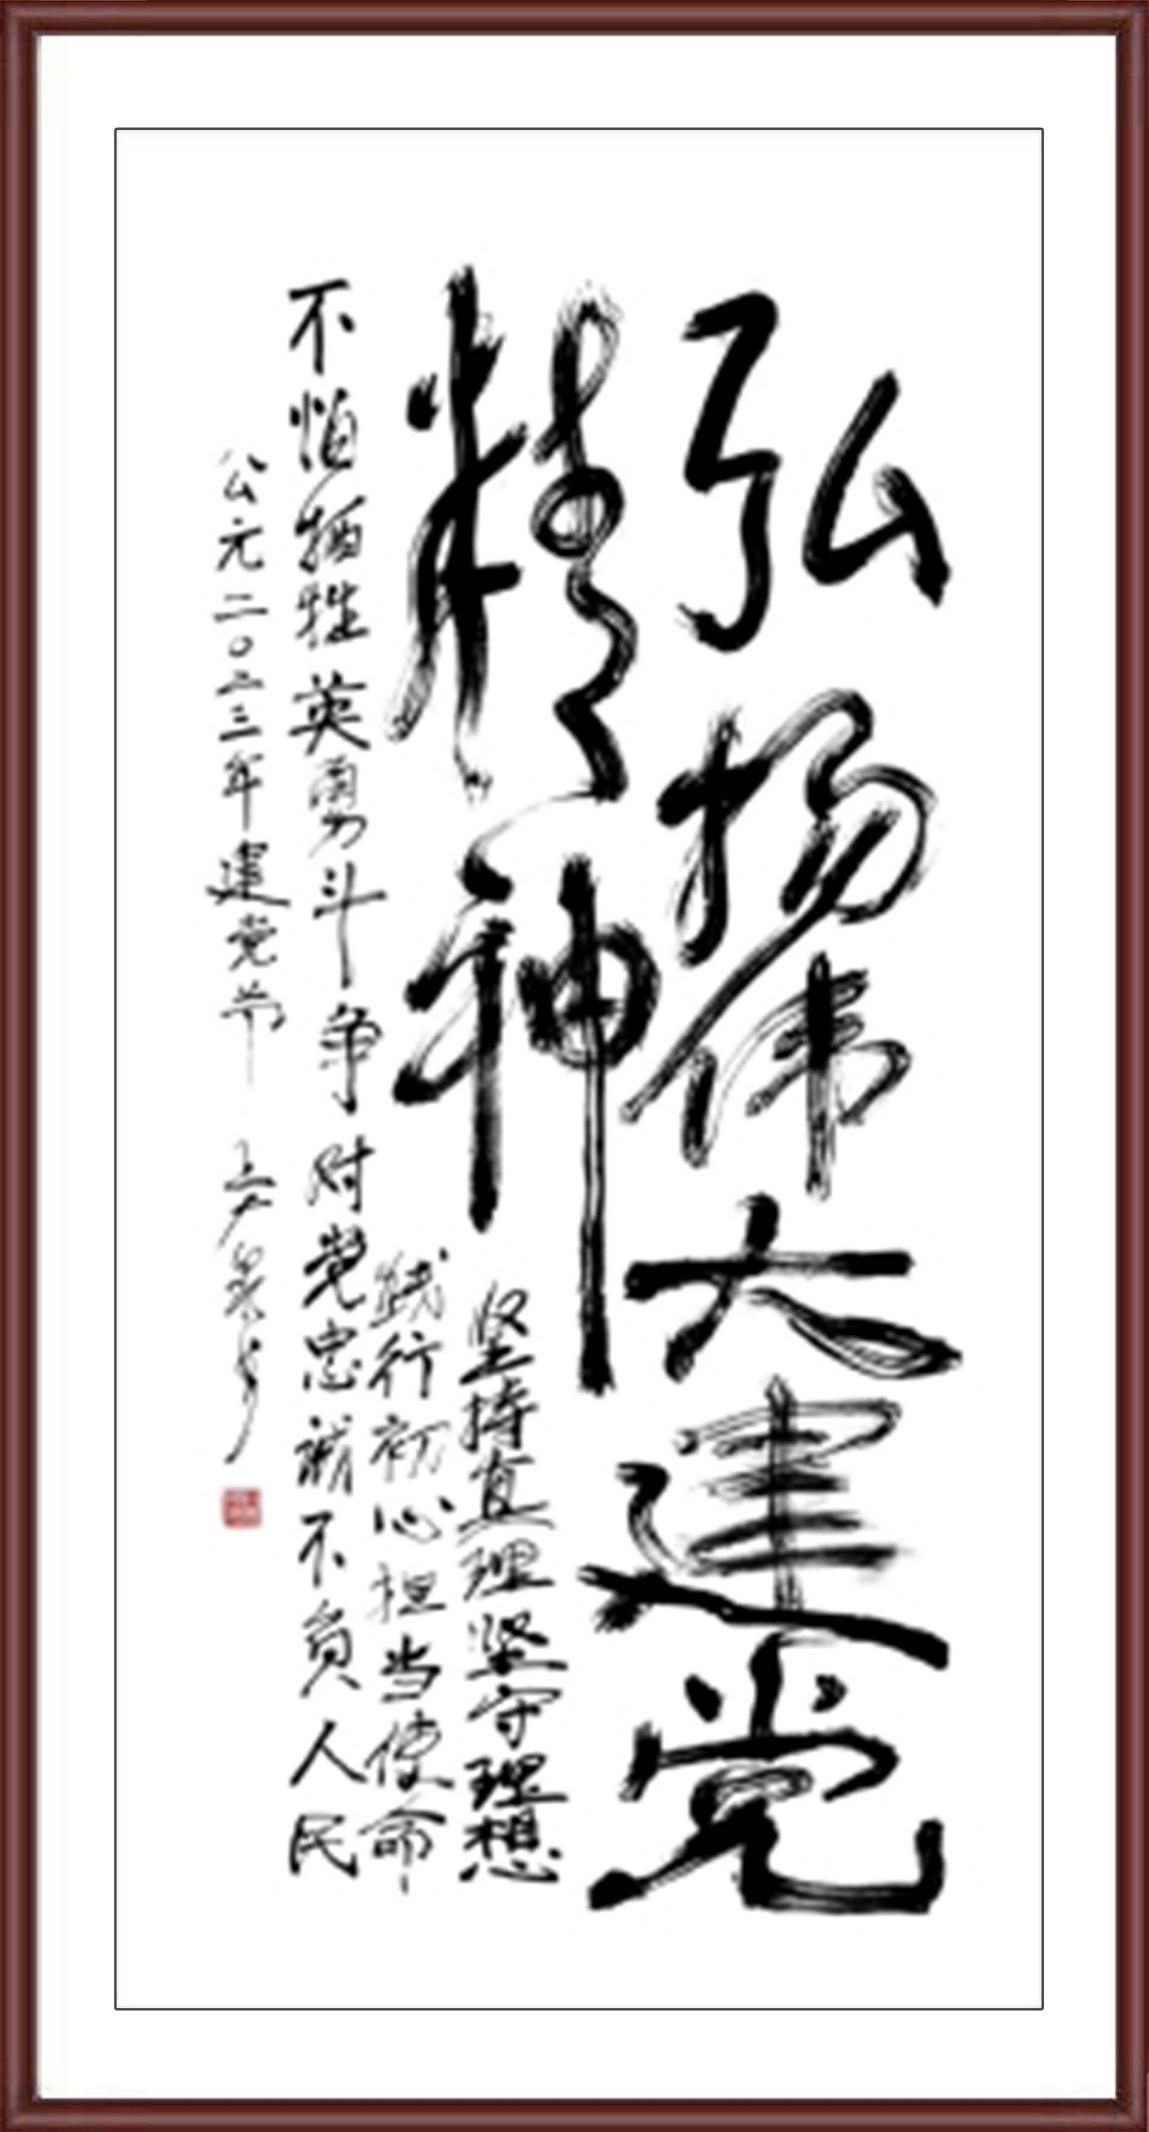 弘扬伟大建党
精神
坚持真理坚守理想
践行初心担当使命
不怕牺牲英勇斗争对党忠诚不负人民
公元二〇二三年建党节